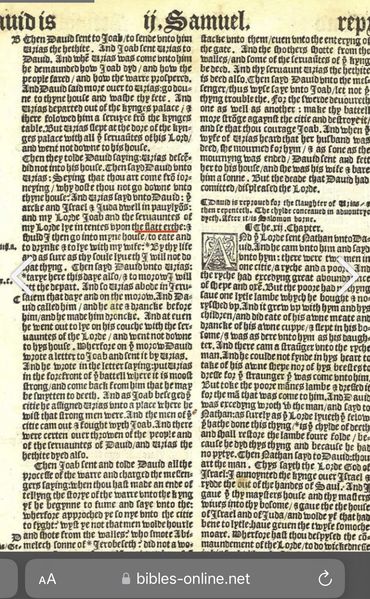 auid is ij. Samuel. repr
B Then Dauid sent to Joab, to sende vnto him
Urias the hethite. And Joab sent Urias to
Dauid. And whē Urias was come vnto him
he demaunded how Joab dyd / and how the
people fared / and how the warre prospered.
And Dauid said more ouer to Urias: go dou-
ne to thyne house and washe thy fete. And
Urias departed out of the kynges palace / &
there folowed him a seruyce frō the kynges
table. But Urias slept at the dore of the kyn-
ges palace with all yͤ seruauntes of his Lord/
and went not downe to his house.
Then they tolde Dauid saying: Urias descē-
did not into his house. Then sayd Dauid vnto
Urias: Seying that thou art come frō io[r]-
neying / why dost thou not go downe vnto
thyne house: And Urias sayd vnto Dauid: yͤ
arcke and Israel & Juda dwell in pauylyōs:
and my Lorde Joab and the seruauntes of
my Lorde lye in tentes vpon the flatt erthe: &
shuld I then go into myne house, to eate and
to drynke & to lye with my wife: * By thy life
& as sure as thy soule lyueth I will not do
that thyng. Then sayd Dauid vnto Urias:
tarye here this daye also / & to morow I will
let the depart. And so Urias abode in Jeru-
salem that daye and on the morow. And Da-
uid called him / & he ate & drancke before
him / and he made him droncke. And at euen
he went out to lye on his couche with the ser-
uauntes of the Lorde / and went not downe
to hys house. Wherfore on yͤ morow Dauid
wrote a letter to Joab and sent it by Urias.
And he wrote in the letter saying: put Urias
in the forefront of yͤ battell where it is moost
strong / and come back from him that he maye
be smyten to deeth. And as Joab beseged yͤ
citie he assigned Urias vnto a place where he
wist that strong men were. And the men of yͤ
citie cam out & fought wyth Joab. And there
were certen ouerthrowen of the people and
of the seruauntes of Dauid / and Urias the
hethite dyed also.
Then Joab sent and tolde Dauid all the
processe of the warre and charged the messen-
gers saying: when thou hast made an ende of
tellyng the storye of the warre vnto the kyng
yf he begynne to fume and saye vnto the:
wherfore approched ye so nye vnto the citie
to fyght: wyst ye not that men wolde hourle
D and shote from the walles: who smote Abi-
melech sonne of * Jerobeseth: did not a wo-
stacke vnto them / euen vnto the entryng of the
gate. And the shoters shote from the
walles / and some of the seruauntes of yͤ kynge
be deed. And thy seruaunt Urias the hethite
is deed also. Then sayd Dauid vnto the mes-
senger / thus wyse saye vnto Joab / let not yͤ
thyng trouble the. For the swerde deuoureth
one as well as another: make thy battell
more strōge agaynst the citie and destroye it/
and se that thou courage Joab. And when yͤ
wyfe of Urias heard that her husband was
deed / she mourned for hym / & as sone as the
mournyng was ended / Dauid sent and fett
her to his house / and she was his wife & bare
him a sonne. But the deade that Dauid had
comitted / displeased the Lorde.
Dauid is reproued for the slaughter of Urias /
then repenteth. The chylde conceiued in aduoutrye
dyeth. After it is Salomon borne.
The .xij. Chapter.
And yͤ Lorde sent Nathan vnto Da-
uid. And he cam vnto him and sayd
vnto hym: there were two men in
one citie, a ryche and a poore. And the
ryche had exceading great abondaunce
of shepe and oxē. But the poore had nothyng
saue one lytle lambe whych he bought & no-
rysshed vp. And it grew vp with hym and hys
children / and did eate of his awne meate and
drancke of his awne cuppe / & slept in his bo-
some / & was as dere vnto hym as his daugh-
ter. And there cam a straunger vnto the ryche
man. And he coude not fynde in hys heart to
take of his awne shepe nor of hys beestes to
dresse for yͤ straunger yͤ was come vnto him.
But toke the poore mānes lambe & dressed it
for the mā that was come to him. And Dauid
was exceadyng wroth wͭ the man / and sayd to
Nathan: as surely as yͤ Lorde lyueth yͤ felow yͭ
hathe done this thyng / * is the chylde of deeth
and shall restore the lambe foure folde / be-
cause he dyd thys thyng and because he had
no pytye. Then Nathan sayd to Dauid: thou
art the man. Thys sayth the Lorde God of
Israel: I anoynted the kynge ouer Israel &
rydde the out of the handes of Saul. And I
gaue yͤ thy maysters house and thy maysters
wiues into thy bosome / & gaue the the house
of Israel and of Juda / and wolde yf that had
bene to lytle / haue geuen the twyse somoche
moare. Wherfore hast thou despysed the co-
maundement of the Lorde / to do wickednesse
AA bibles-online.net